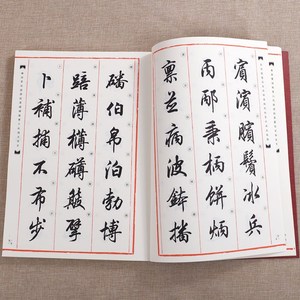 賓濱臏鬢冰兵
丙邴秉柄餅炳
稟並病波鉢播
磻伯帛泊勃博
踣薄礴擘
卜補捕不布步